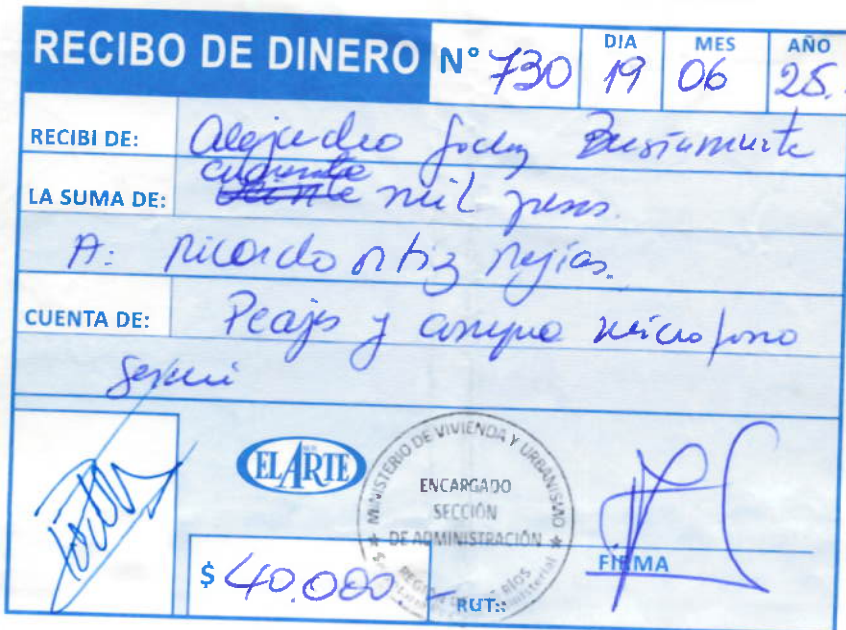 RECIBO DE DINERO N° 730 DIA 19 MES 06 AÑO 25.
RECIBI DE: Alejandro Bustamante
cuarenta
LA SUMA DE: mil pesos.
A: Ricardo Ortiz Mejías.
CUENTA DE: Peajes y compra micrófono
Seremi
EL ARTE
MINISTERIO DE VIVIENDA Y URBANISMO
ENCARGADO
SECCIÓN
DE ADMINISTRACIÓN
REGIÓN DE RÍOS
FIRMA
$ 40.000 -
RUT::